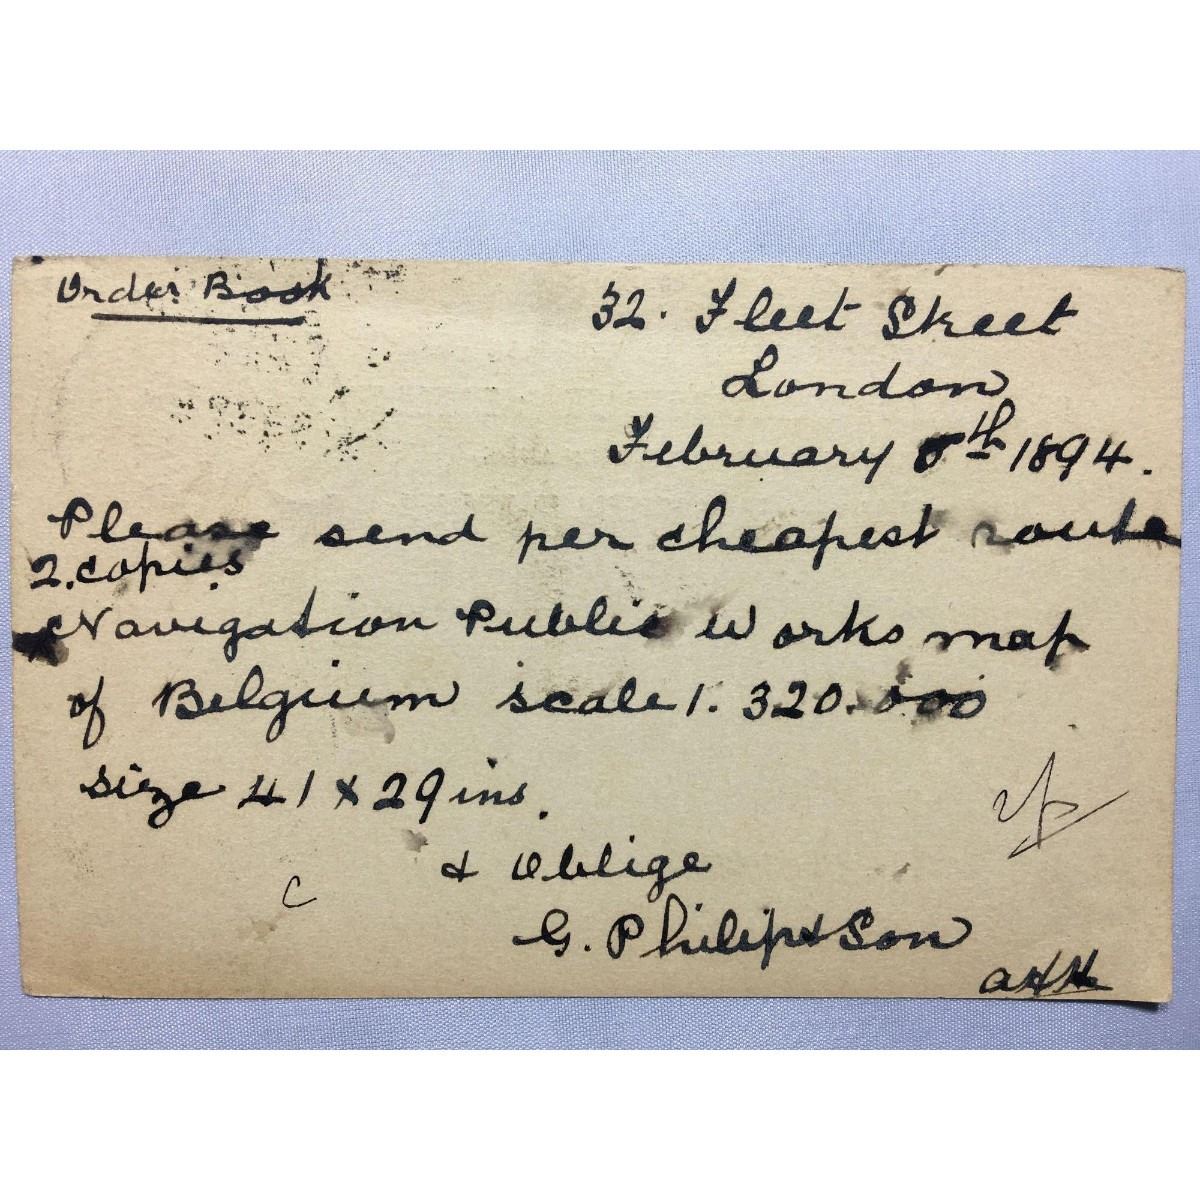 Order Book
32. Fleet Street
London
February 8th 1894.
Please send per cheapest route
2. copies
Navigation Public Works map
of Belgium scale 1. 320.000
size 41 x 29 ins.
& Oblige
G. Philip & Son
C